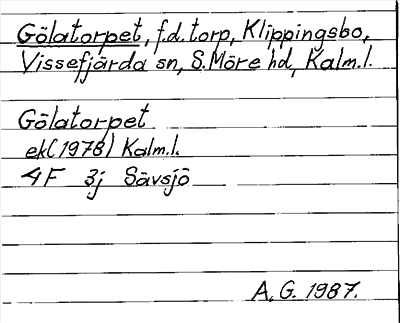 Gölatorpet, f.d. torp, Klippingsbo,
Vissefjärda sn, S. Möre hd, Kalm.l.
Gölatorpet
ek(1978) Kalm.l.
4F 3j Sävsjö
A.G. 1987.